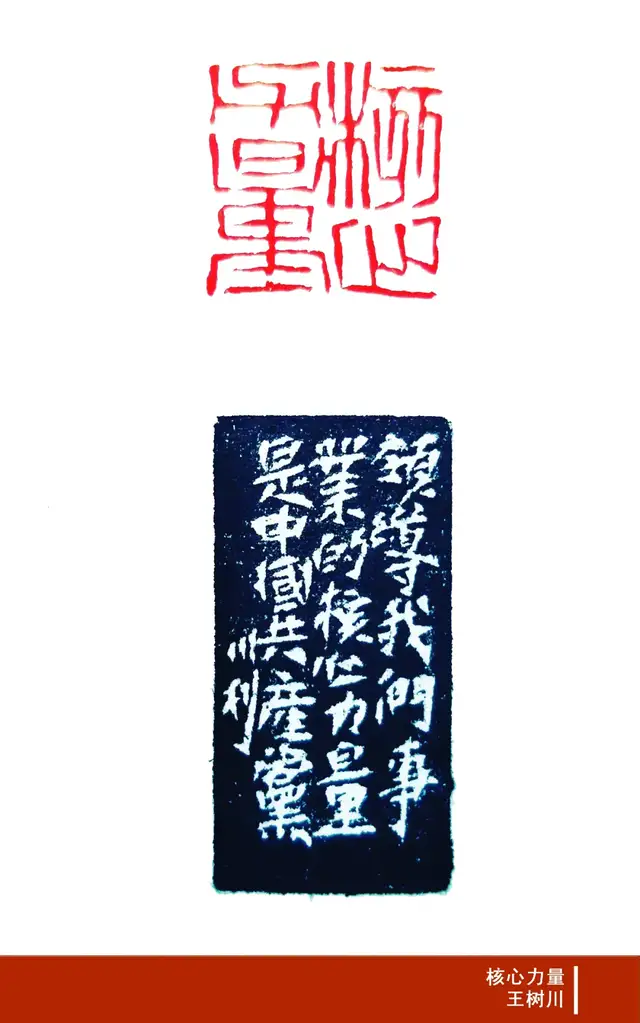 核心
力量
領導我們事
業的核心力量
是中國共産黨
川刻
核心力量
王树川